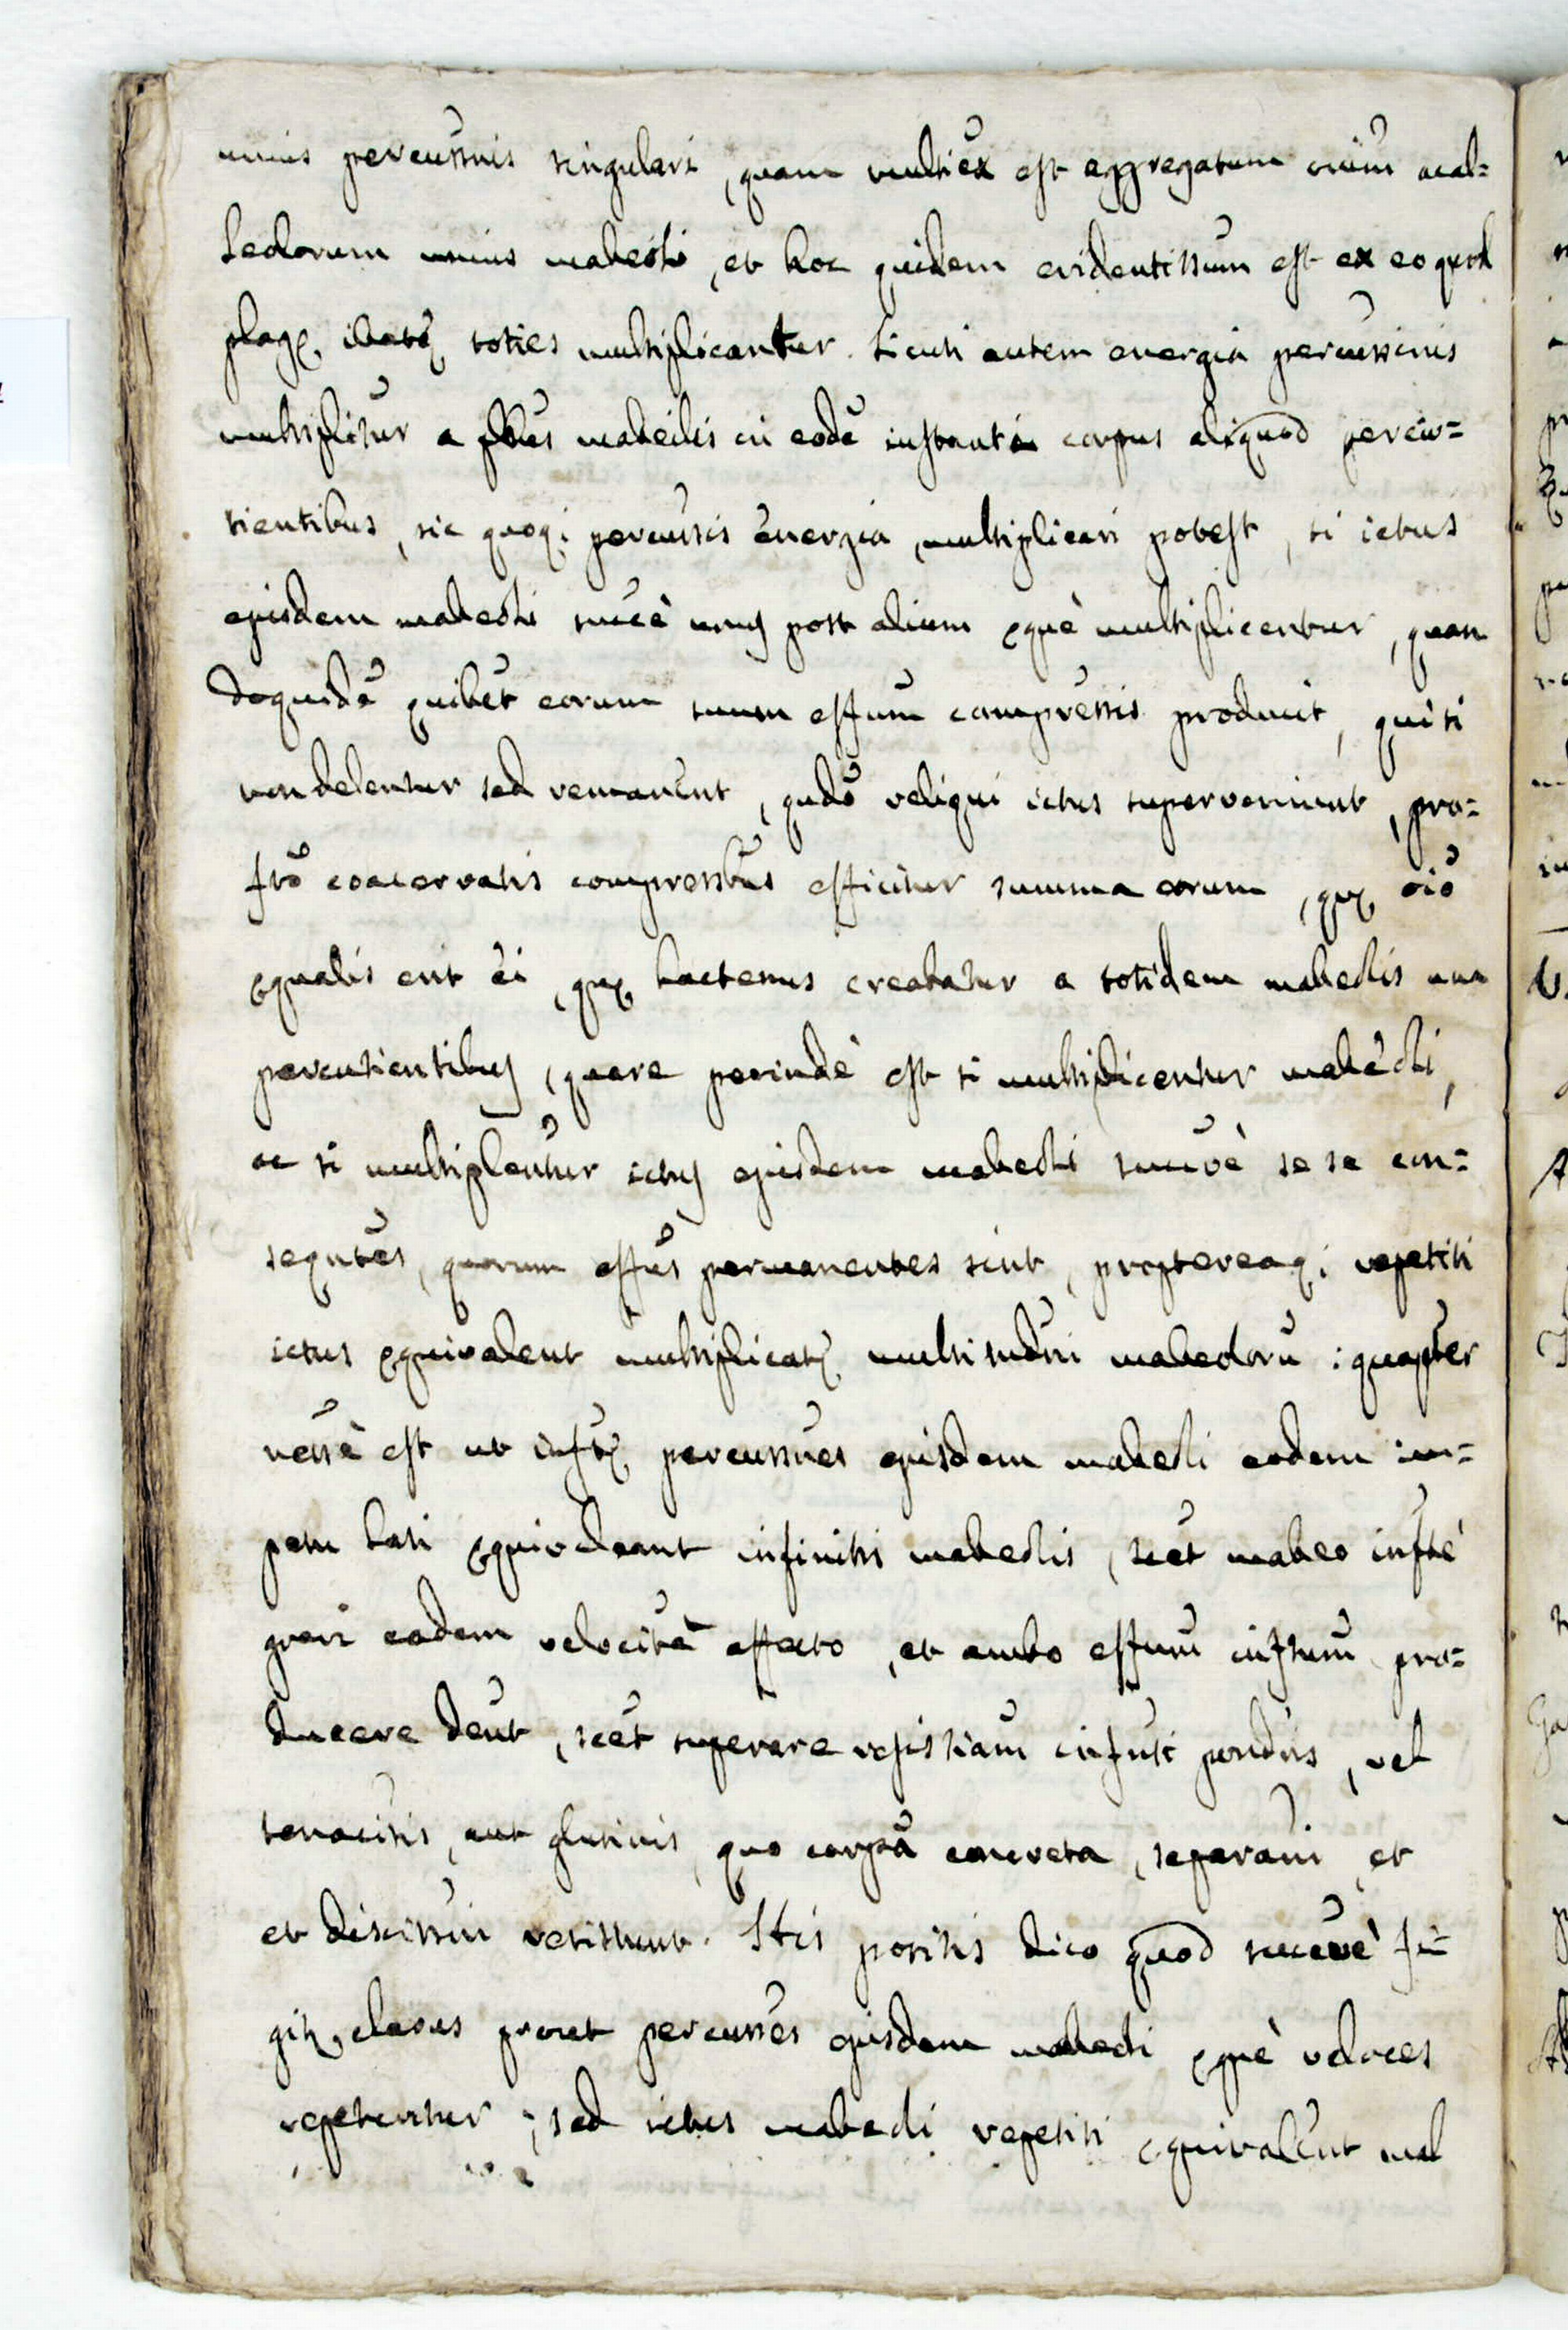 unius percussnis singulari, quam multiex est aggregatum oium mal=
leolorum unius malleoli, et hoc quidem evidentissum est ex eo quod
plagę illatę toties multiplicantur. sicuti autem energia percussinis
multiplitur a plibus malleolis in eodē instanti corpus aliquod percu=
tientibus, sic quoq; percussis energia, multiplicari potest, si ictus
ejusdem malleoli succè unus post alium ęquè multiplicentur, quan
doquidē quibet eorum suum effum compressis producit, qui si
non delentur sed remanent, qudo reliqui ictus superveniunt, pro=
fto coacervatis compressibus efficitur summa eorum, quę oio
ęqualis erit ei, quę hactenus creabatur a totidem malleolis una
percutientibus, quare perindè est si multiplicentur malleoli,
ac si multiplentur ictus ejusdem malleoli succvè se se con=
sequtes, quorum effus permanentes sint, proptereaq; repetiti
ictus ęquivalent multiplicatę multitudini malleolorū: quapter
nessè est ut inftę percussnes ejusdem malleoli eodem im=
petu lati ęquivaleant infinitis malleolis, scet malleo inftè
gravi eadem velocitè affecto, et ambo effum inftum pro=
ducere deut, scet superare resistiam infuti pondris, vel
tenacitis, aut glutinis, quo corpra concreta, separani, et
et discissni resistunt. Stis positis dico quod succvè fi=
gitę clavus prout percusses ejusdem malleoli ęquè veloces
repetentur; sed ictus malleoli repetiti ęquivalent mal